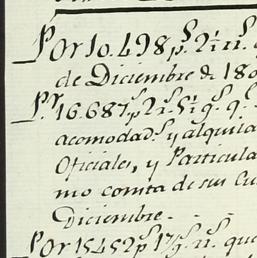 Por 10.498 p.s 2½ r.s
de Diciembre de 180
P.r 16.687 p.s 2 r.s 5½ g.s q.e
acomoda.d.s y alquila
Oficiales, y Particula
mo consta de sus Cu
Diciembre.
Por 15452 p.s 1½ r.s que